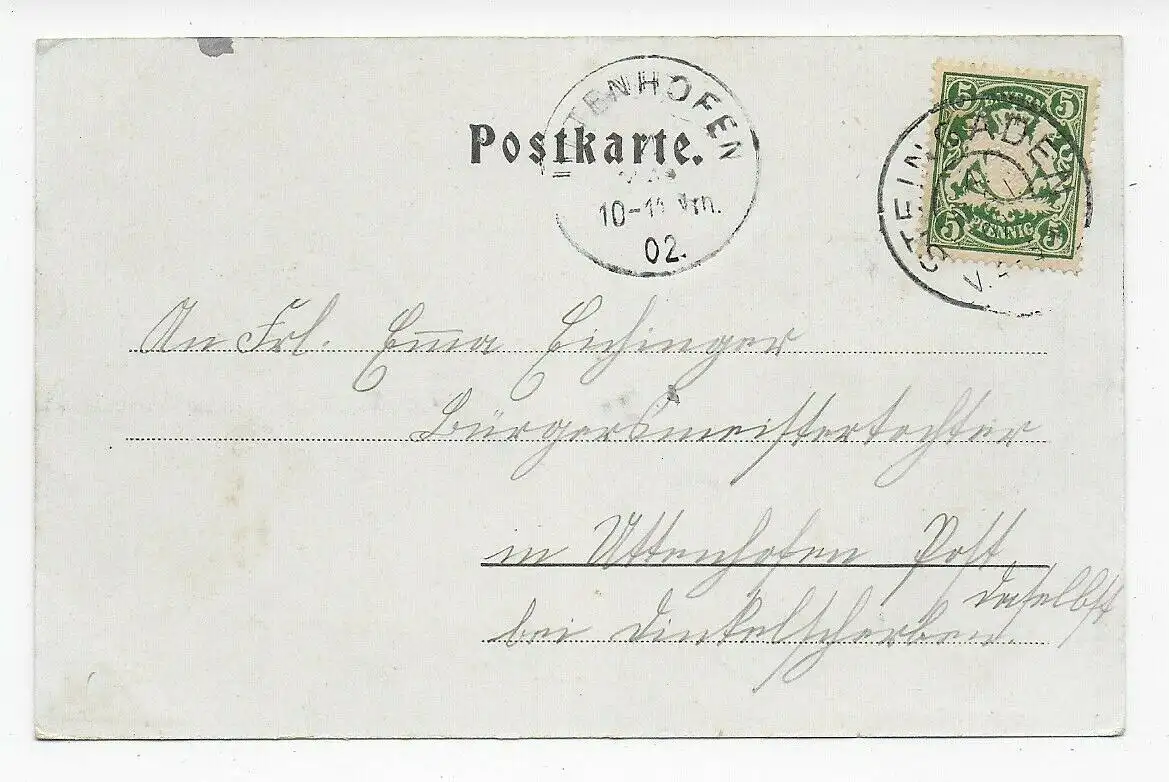 Postkarte.
TTENHOFEN
10-11 Vm.
02.
STEINGADEN
5 BAYERN 5
5 PFENNIG 5
An Frl. Emma Eichinger
Bürgersmeistertochter
in Uttenhofen Post
daselbst
bei Dinkelscherben.